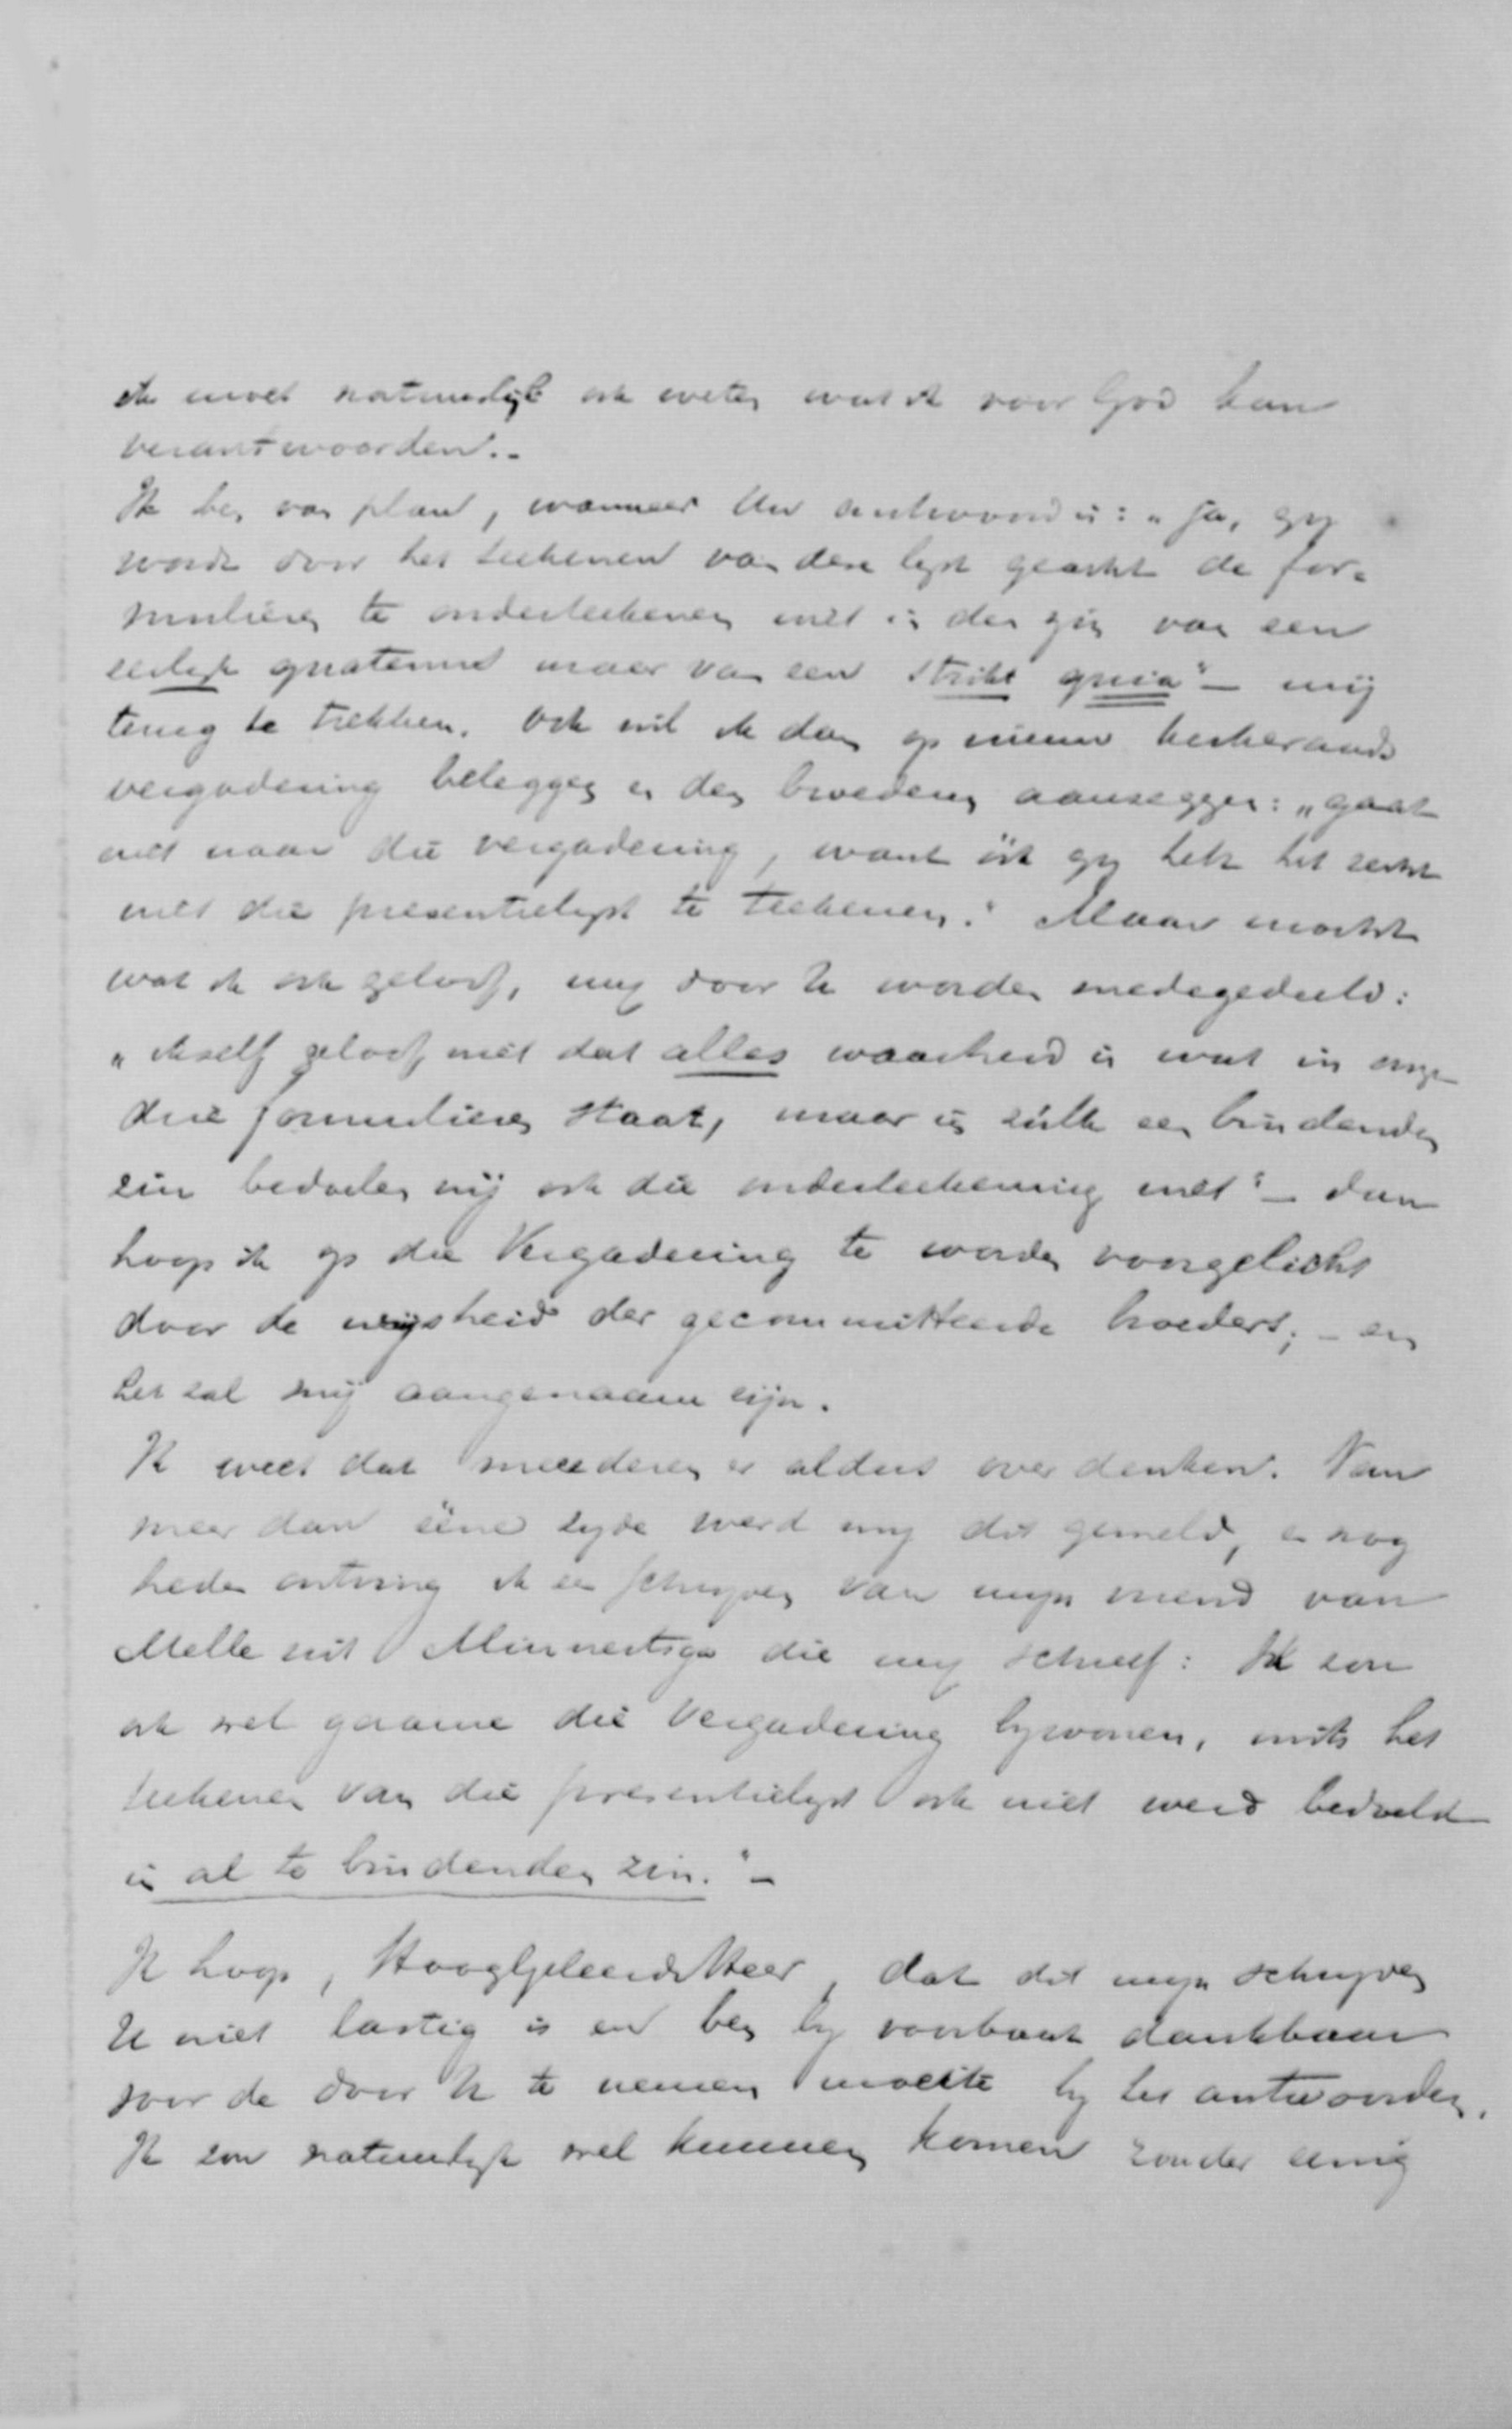 ik moet natuurlijk ook weten wat ik voor God kan
verantwoorden.-
Ik ben van plan, wanneer Uw antwoord is: "Ja, gij
wordt door het teekenen van deze lijst geacht de for-
mulieren te onderteekenen niet in den zin van een
eerlijk quatenus maar van een strikt quia" - mij
terug te trekken. Ook wil ik dan op nieuw kerkeraads
vergadering beleggen en den broederen aanzeggen: "gaat
niet naar die vergadering, want óók gij hebt het recht
niet die presentielijst te teekenen." Maar mocht
wat ik ook geloof, mij door U worden medegedeeld:
"ikzelf geloof niet dat alles waarheid is wat in onze
drie formulieren staat, maar in zulk een bindenden
zin bedoelen wij ook die onderteekening niet" - dan
hoop ik op die Vergadering te worden voorgelicht
door de wijsheid der gecommitteerde broeders; - en
het zal mij aangenaam zijn.
Ik weet dat meerderen er aldus over denken. Van
meer dan eéne zijde werd mij dit gemeld, en nog
heden ontving ik een schrijven van mijn vriend van
Melle uit Minnertsga die mij schreef: Ik zou
ook wel gaarne die Vergadering bijwonen, mits het
teekenen van die presentielijst ook niet werd bedoeld
in al te bindenden zin." -
Ik hoop, HoogGeleerde Heer, dat dit mijn schrijven
U niet lastig is en ben bij voorbaat dankbaar
voor de door U te nemen moeite bij het antwoorden.
Ik zou natuurlijk wel kunnen komen zonder eenig